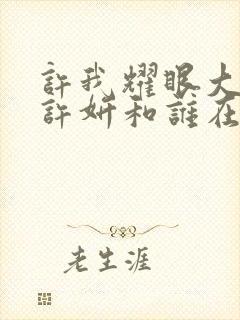 許我耀眼大
許妍和誰在
老生涯